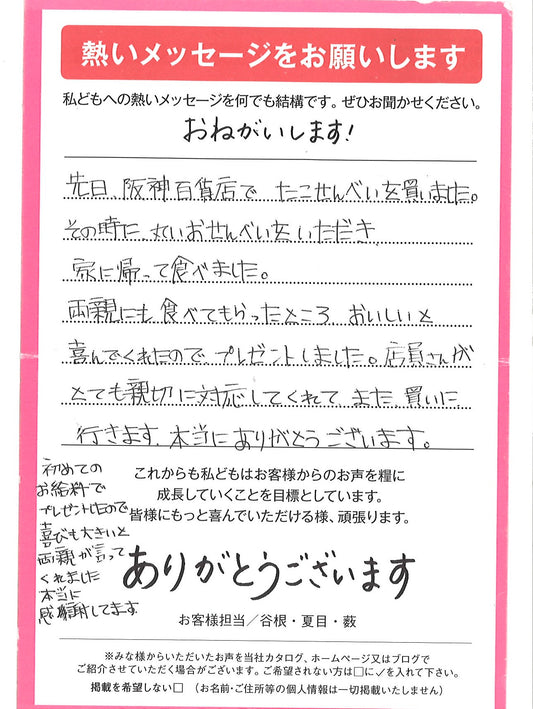 熱いメッセージをお願いします
私どもへの熱いメッセージを何でも結構です。ぜひお聞かせください。
おねがいします!
先日 阪神百貨店で たこせんべいを買いました。
その時に 丸いおせんべいを いただき
家に帰って食べました。
両親にも 食べてもらったところ おいしいと
喜んでくれたので、プレゼントしました。店員さんが
とても親切に対応してくれて また、買いに
行きます。本当にありがとうございます。
初めての
お給料で
プレゼントしたので
喜びも大きいと
両親が言って
くれました
本当に
感謝してます
これからも私どもはお客様からのお声を糧に
成長していくことを目標としています。
皆様にもっと喜んでいただける様、頑張ります。
ありがとうございます
お客様担当／谷根・夏目・薮
※みな様からいただいたお声を当社カタログ、ホームページ又はブログで
ご紹介させていただく場合がございます。ご希望されない方は□に✓を入れて下さい。
掲載を希望しない□ （お名前・ご住所等の個人情報は一切掲載いたしません）